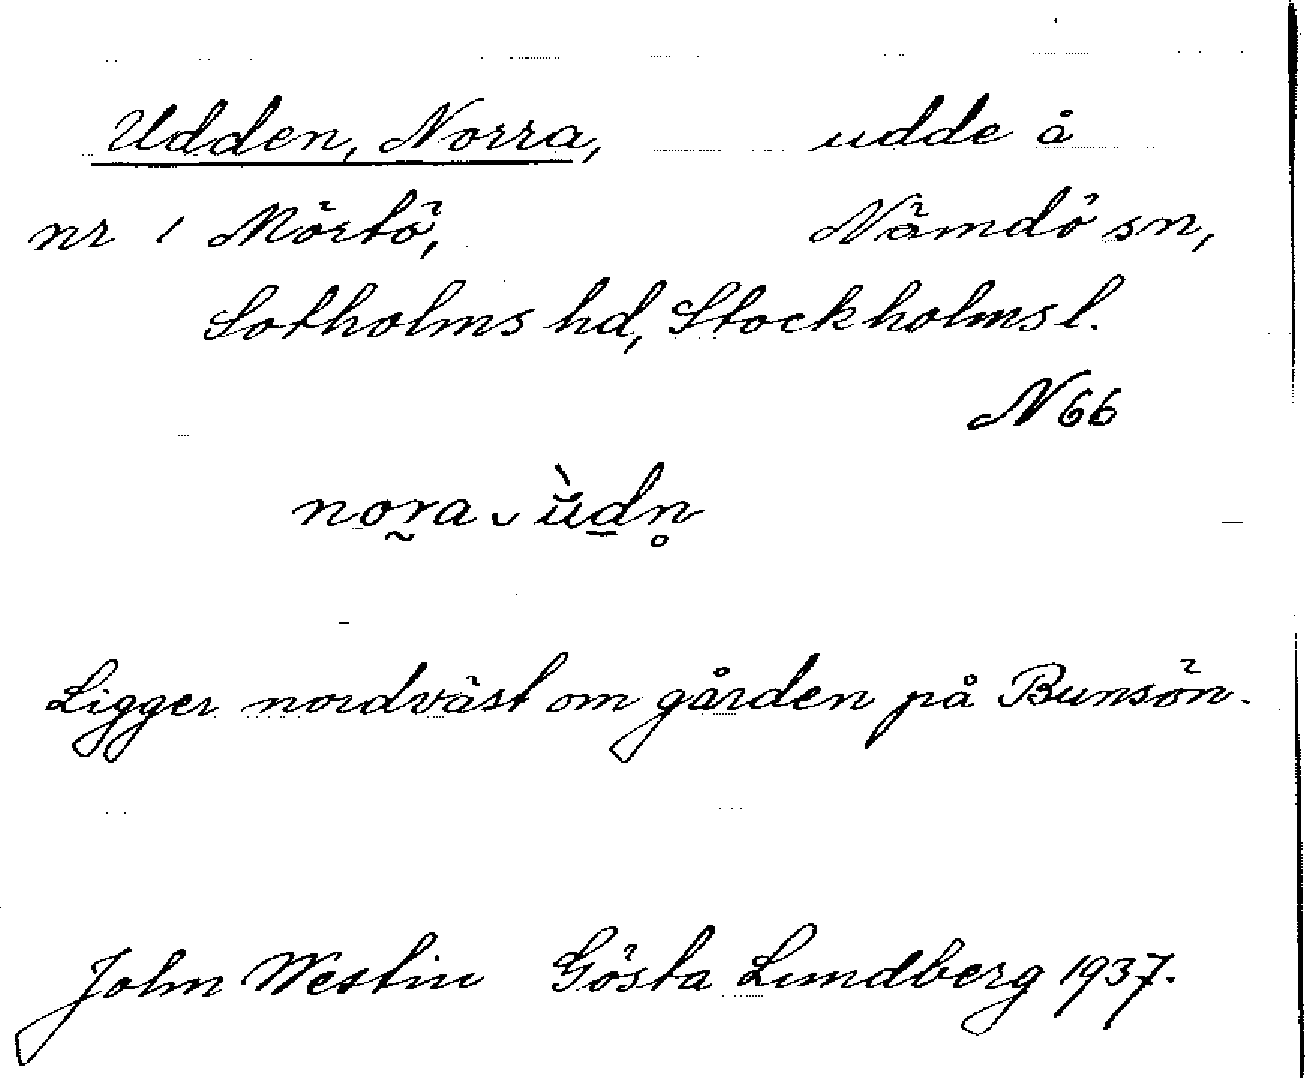 Udden, Norra, udde å
nr 1 Mörtö, Nämdö sn,
Sotholms hd, Stockholms l.
N 66
nora ùdn
Ligger nordväst om gården på Bunsön.
John Westin Gösta Lundberg 1937.